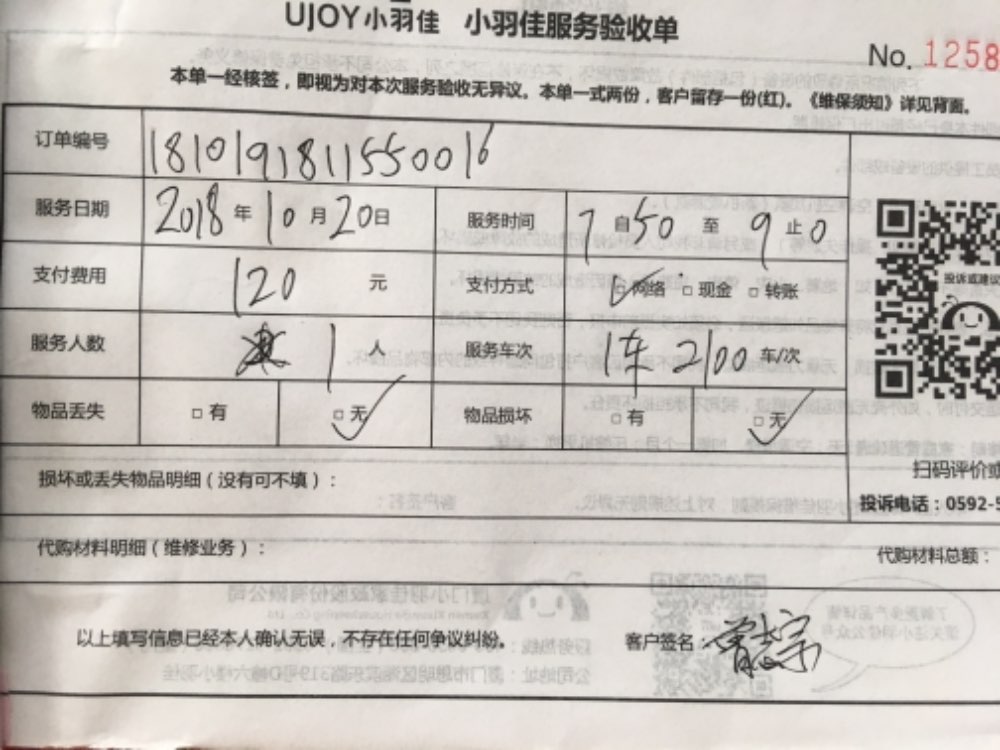 UJOY小羽佳 小羽佳服务验收单
No. 1258
本单一经核签，即视为对本次服务验收无异议。本单一式两份，客户留存一份(红)。《维保须知》详见背面。
订单编号 1810191811550016
服务日期 2018年10月20日 服务时间 7自50至9止0
支付费用 120元 支付方式 □网络 □现金 □转账
投诉或建议
服务人数 1人 服务车次 车/次
物品丢失 □有 □无 物品损坏 □有 □无
扫码评价或
损坏或丢失物品明细（没有可不填）：
投诉电话：0592-5
代购材料明细（维修业务）： 代购材料总额：
以上填写信息已经本人确认无误，不存在任何争议纠纷。 客户签名：曾志宗